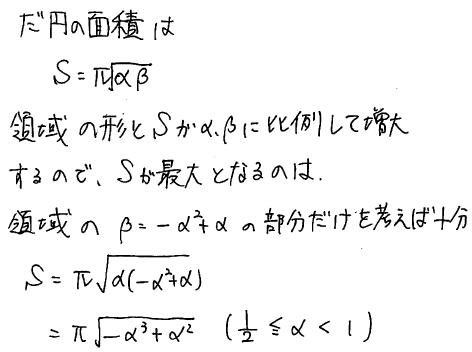 だ円の面積は
S = π√αβ
領域の形とSがα、βに比例して増大
するので、Sが最大となるのは、
領域の β = -α²+α の部分だけを考えれば十分
S = π√α(-α²+α)
= π√-α³+α² (1/2 ≦ α < 1)